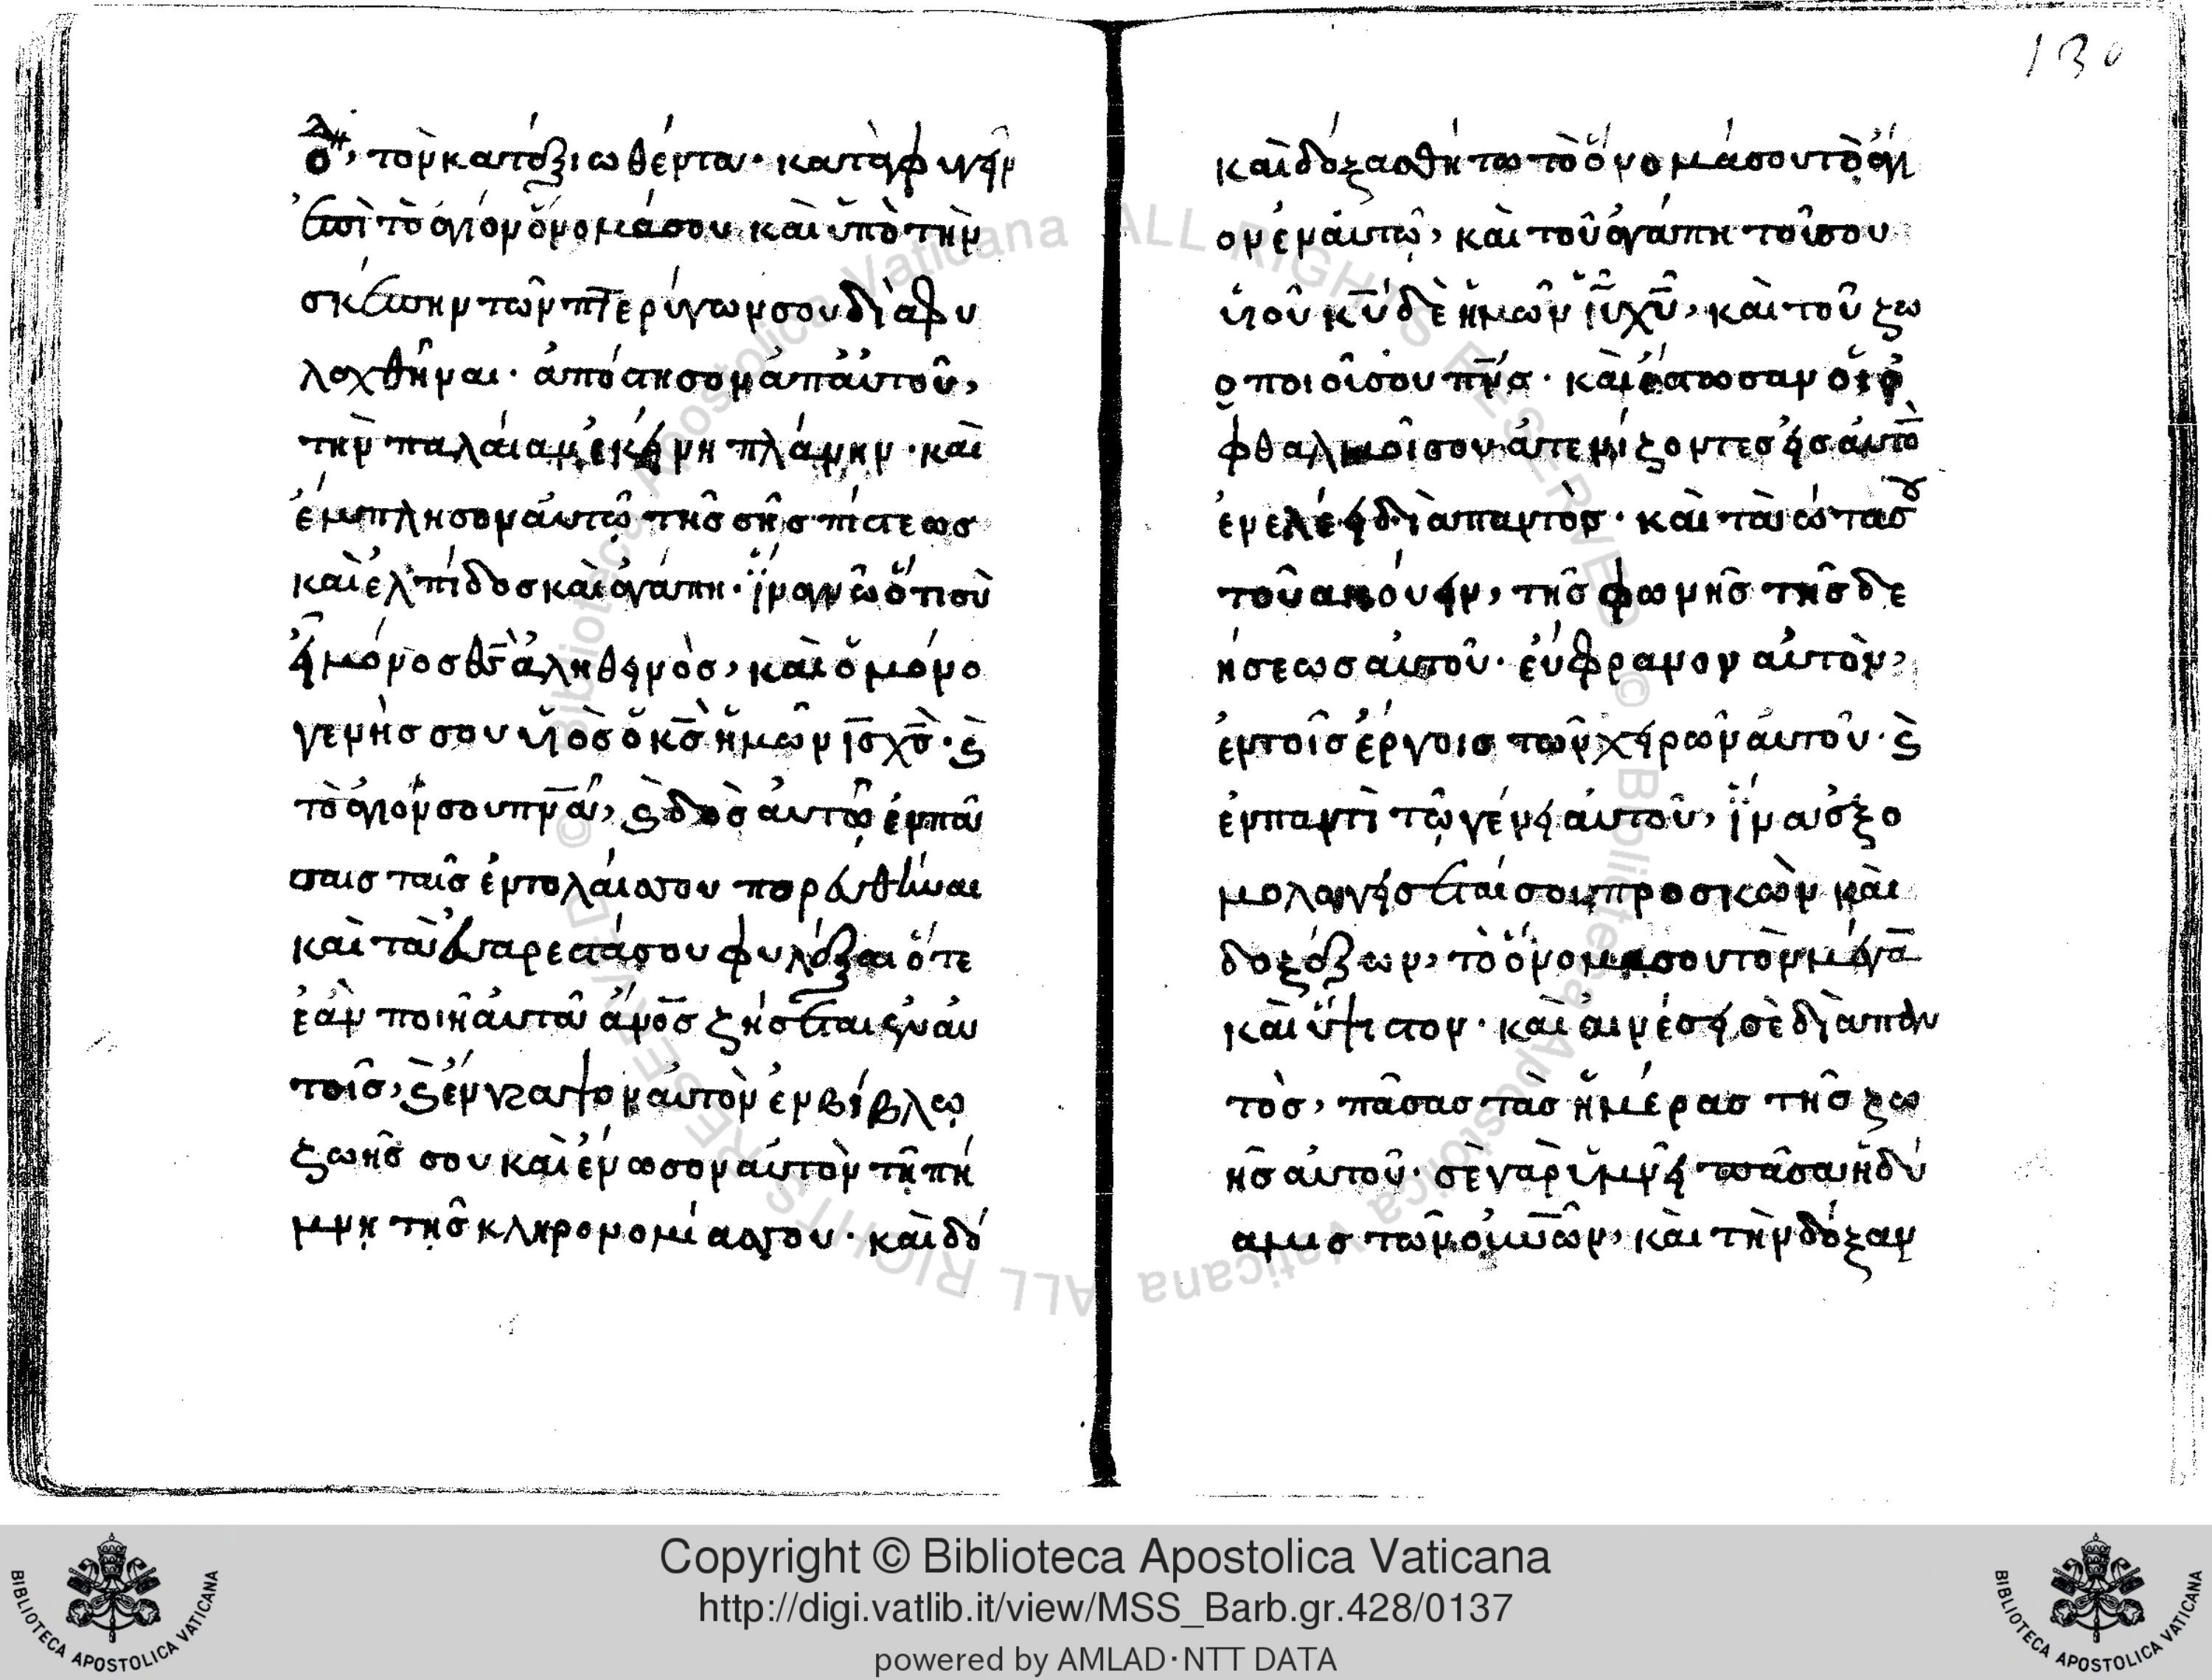 130
ὁ δη, τὸν καταξιωθέντα· καταφυγεῖν
ἐπὶ τὸ ἅγιον ὄνομά σου καὶ ὑπὸ τὴν
σκέπην τῶν πτερύγων σου διαφυ
λαχθῆναι· ἀπόστησον ἀπ' αὐτοῦ,
τὴν παλαιὰν ἐκείνη πλάνην· καὶ
ἔμπλησον αὐτῷ τῆς σῆς πίστεως
καὶ ἐλπίδος καὶ ἀγάπη· ἵνα γνῶ ὅτι σὺ
εἶ μόνος θς ἀληθεινὸς, καὶ ὁ μόνο
γενής σου υἱὸς ὁ κς ἡμῶν ις χς· ϛ
τὸ ἅγιόν σου πνα, ϛ δὸς αὐτῷ ἐν πά
σαις ταῖς ἐντολαίς σου πορευθῆναι
καὶ τὰ εὐάρεστά σου φυλάξαι ὅτε
ἐὰν ποιῆ αὐτὰ ἄνος ζήσεται ἐν αὐ
τοῖς, ϛ ἔνγραψον αὐτὸν ἐν βίβλω
ζωῆς σου καὶ ἕνωσον αὐτὸν τῆ πή
μνη τῆς κληρονομίας σου· καὶ δό
καὶ δοξασθήτω τὸ ὄνομά σου τὸ ἅγι
ον ἐν αὐτῷ, καὶ τοῦ ἀγαπητοῦ σου
υἱοῦ κυ δὲ ἡμῶν ιυ χυ, καὶ τοῦ ζω
οποιοῦ σου πνς· καὶ ἔστωσαν οἱ ὀ
φθαλμοί σου ἀτενίζοντες εἰς αὐτὸ
ἐν ἐλέει διαπαντός· καὶ τὰ ὦτα σου
τοῦ ἀκούειν, τῆς φωνῆς τῆς δε
ήσεως αὐτοῦ· εὔφρανον αὐτὸν,
ἐν τοῖς ἔργοις τῶν χειρῶν αὐτοῦ· ϛ
ἐν παντὶ τῷ γένει αὐτοῦ, ἵνα ἐξο
μολογήσεταί σοι προσκυνῶν καὶ
δοξάζων, τὸ ὄνομά σου τὸν μέγα
καὶ ὕψιστον· καὶ αἰνέσει σὲ διαπαν
τὸς, πᾶσας τὰς ἡμέρας τῆς ζω
ῆς αὐτοῦ· σὲ γὰρ ὑμνεῖ πᾶσα ἡ δύ
αμις τῶν οὐνῶν, καὶ τὴν δόξαν
Copyright © Biblioteca Apostolica Vaticana
http://digi.vatlib.it/view/MSS_Barb.gr.428/0137
powered by AMLAD·NTT DATA
BIBLIOTECA APOSTOLICA VATICANA
BIBLIOTECA APOSTOLICA VATICANA